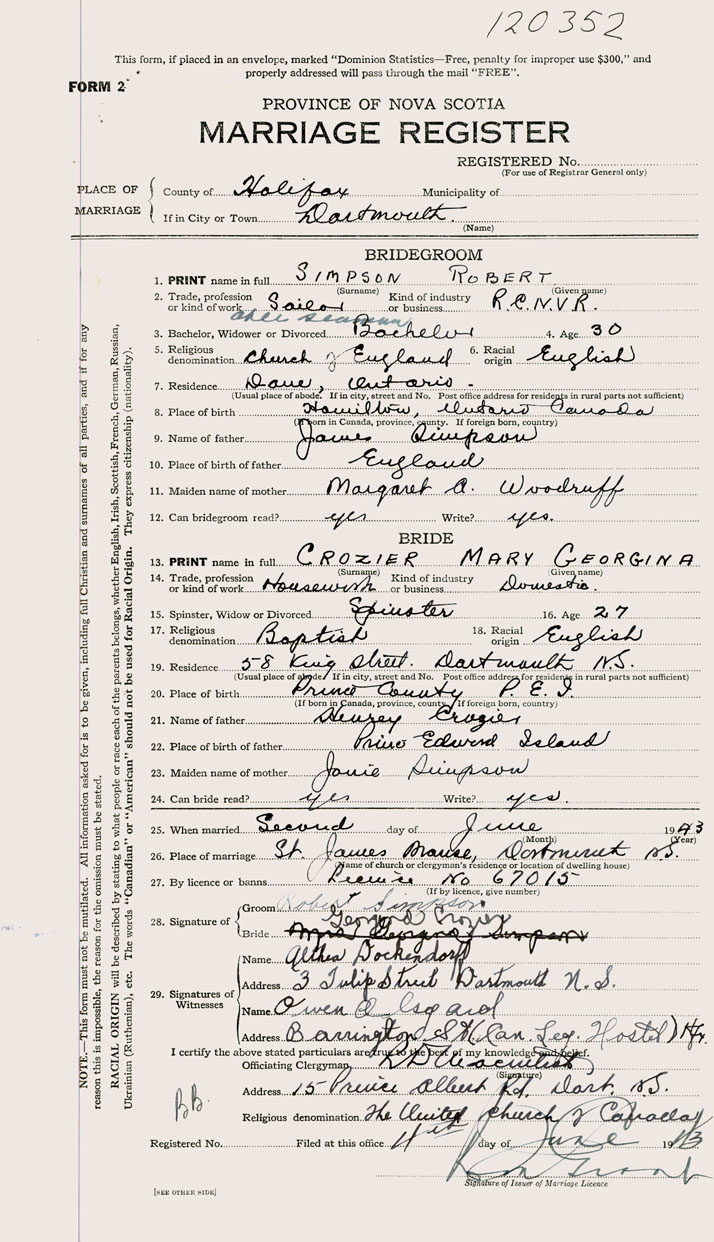 120352
This form, if placed in an envelope, marked "Dominion Statistics—Free, penalty for improper use $300," and
properly addressed will pass through the mail "FREE".
FORM 2
PROVINCE OF NOVA SCOTIA
MARRIAGE REGISTER
REGISTERED No.
(For use of Registrar General only)
PLACE OF MARRIAGE
County of Halifax Municipality of
If in City or Town Dartmouth.
(Name)
BRIDEGROOM
1. PRINT name in full SIMPSON ROBERT
(Surname) (Given name)
2. Trade, profession or kind of work Sailor Kind of industry or business R.C.N.V.R.
able seaman
3. Bachelor, Widower or Divorced Bachelor 4. Age 30
5. Religious denomination Church of England 6. Racial origin English
7. Residence Ontario.
(Usual place of abode. If in city, street and No. Post office address for residents in rural parts not sufficient)
8. Place of birth Hamilton, Ontario Canada
(If born in Canada, province, county. If foreign born, country)
9. Name of father James Simpson
10. Place of birth of father England
11. Maiden name of mother Margaret A. Woodruff
12. Can bridegroom read? yes Write? yes.
BRIDE
13. PRINT name in full CROZIER MARY GEORGINA
(Surname) (Given name)
14. Trade, profession or kind of work Housework Kind of industry or business Domestic.
15. Spinster, Widow or Divorced Spinster 16. Age 27
17. Religious denomination Baptist 18. Racial origin English
19. Residence 58 King Street. Dartmouth N.S.
(Usual place of abode. If in city, street and No. Post office address for residents in rural parts not sufficient)
20. Place of birth Prince County P.E.I.
(If born in Canada, province, county. If foreign born, country)
21. Name of father Henrey Crozier
22. Place of birth of father Prince Edward Island
23. Maiden name of mother Janie Simpson
24. Can bride read? yes Write? yes.
25. When married Second day of June 1943
(Month) (Year)
26. Place of marriage St. James Manse, Dartmouth N.S.
(Name of church or clergyman's residence or location of dwelling house)
27. By licence or banns Licence No 67015
(If by licence, give number)
28. Signature of
Groom Robert Simpson
Georgina Crozier
Bride
29. Signatures of Witnesses
Name Althea Dockendorf
Address 3 Tulip Street Dartmouth N.S.
Name Owen
Address Barrington St (Can. Leg. Hostel) Hfx.
I certify the above stated particulars are true to the best of my knowledge and belief.
Officiating Clergyman
(Signature)
Address 15 Prince Albert Rd. Dart. N.S.
BB.
Religious denomination The United Church of Canada
Registered No. Filed at this office 11th day of June 1943
Signature of Issuer of Marriage Licence
[SEE OTHER SIDE]
NOTE.—This form must not be mutilated. All information asked for is to be given, including full Christian and surnames of all parties, and if for any
reason this is impossible, the reason for the omission must be stated.
RACIAL ORIGIN will be described by stating to what people or race each of the parents belongs, whether English, Irish, Scottish, French, German, Russian,
Ukrainian (Ruthenian), etc. The words "Canadian" or "American" should not be used for Racial Origin. They express citizenship (nationality).